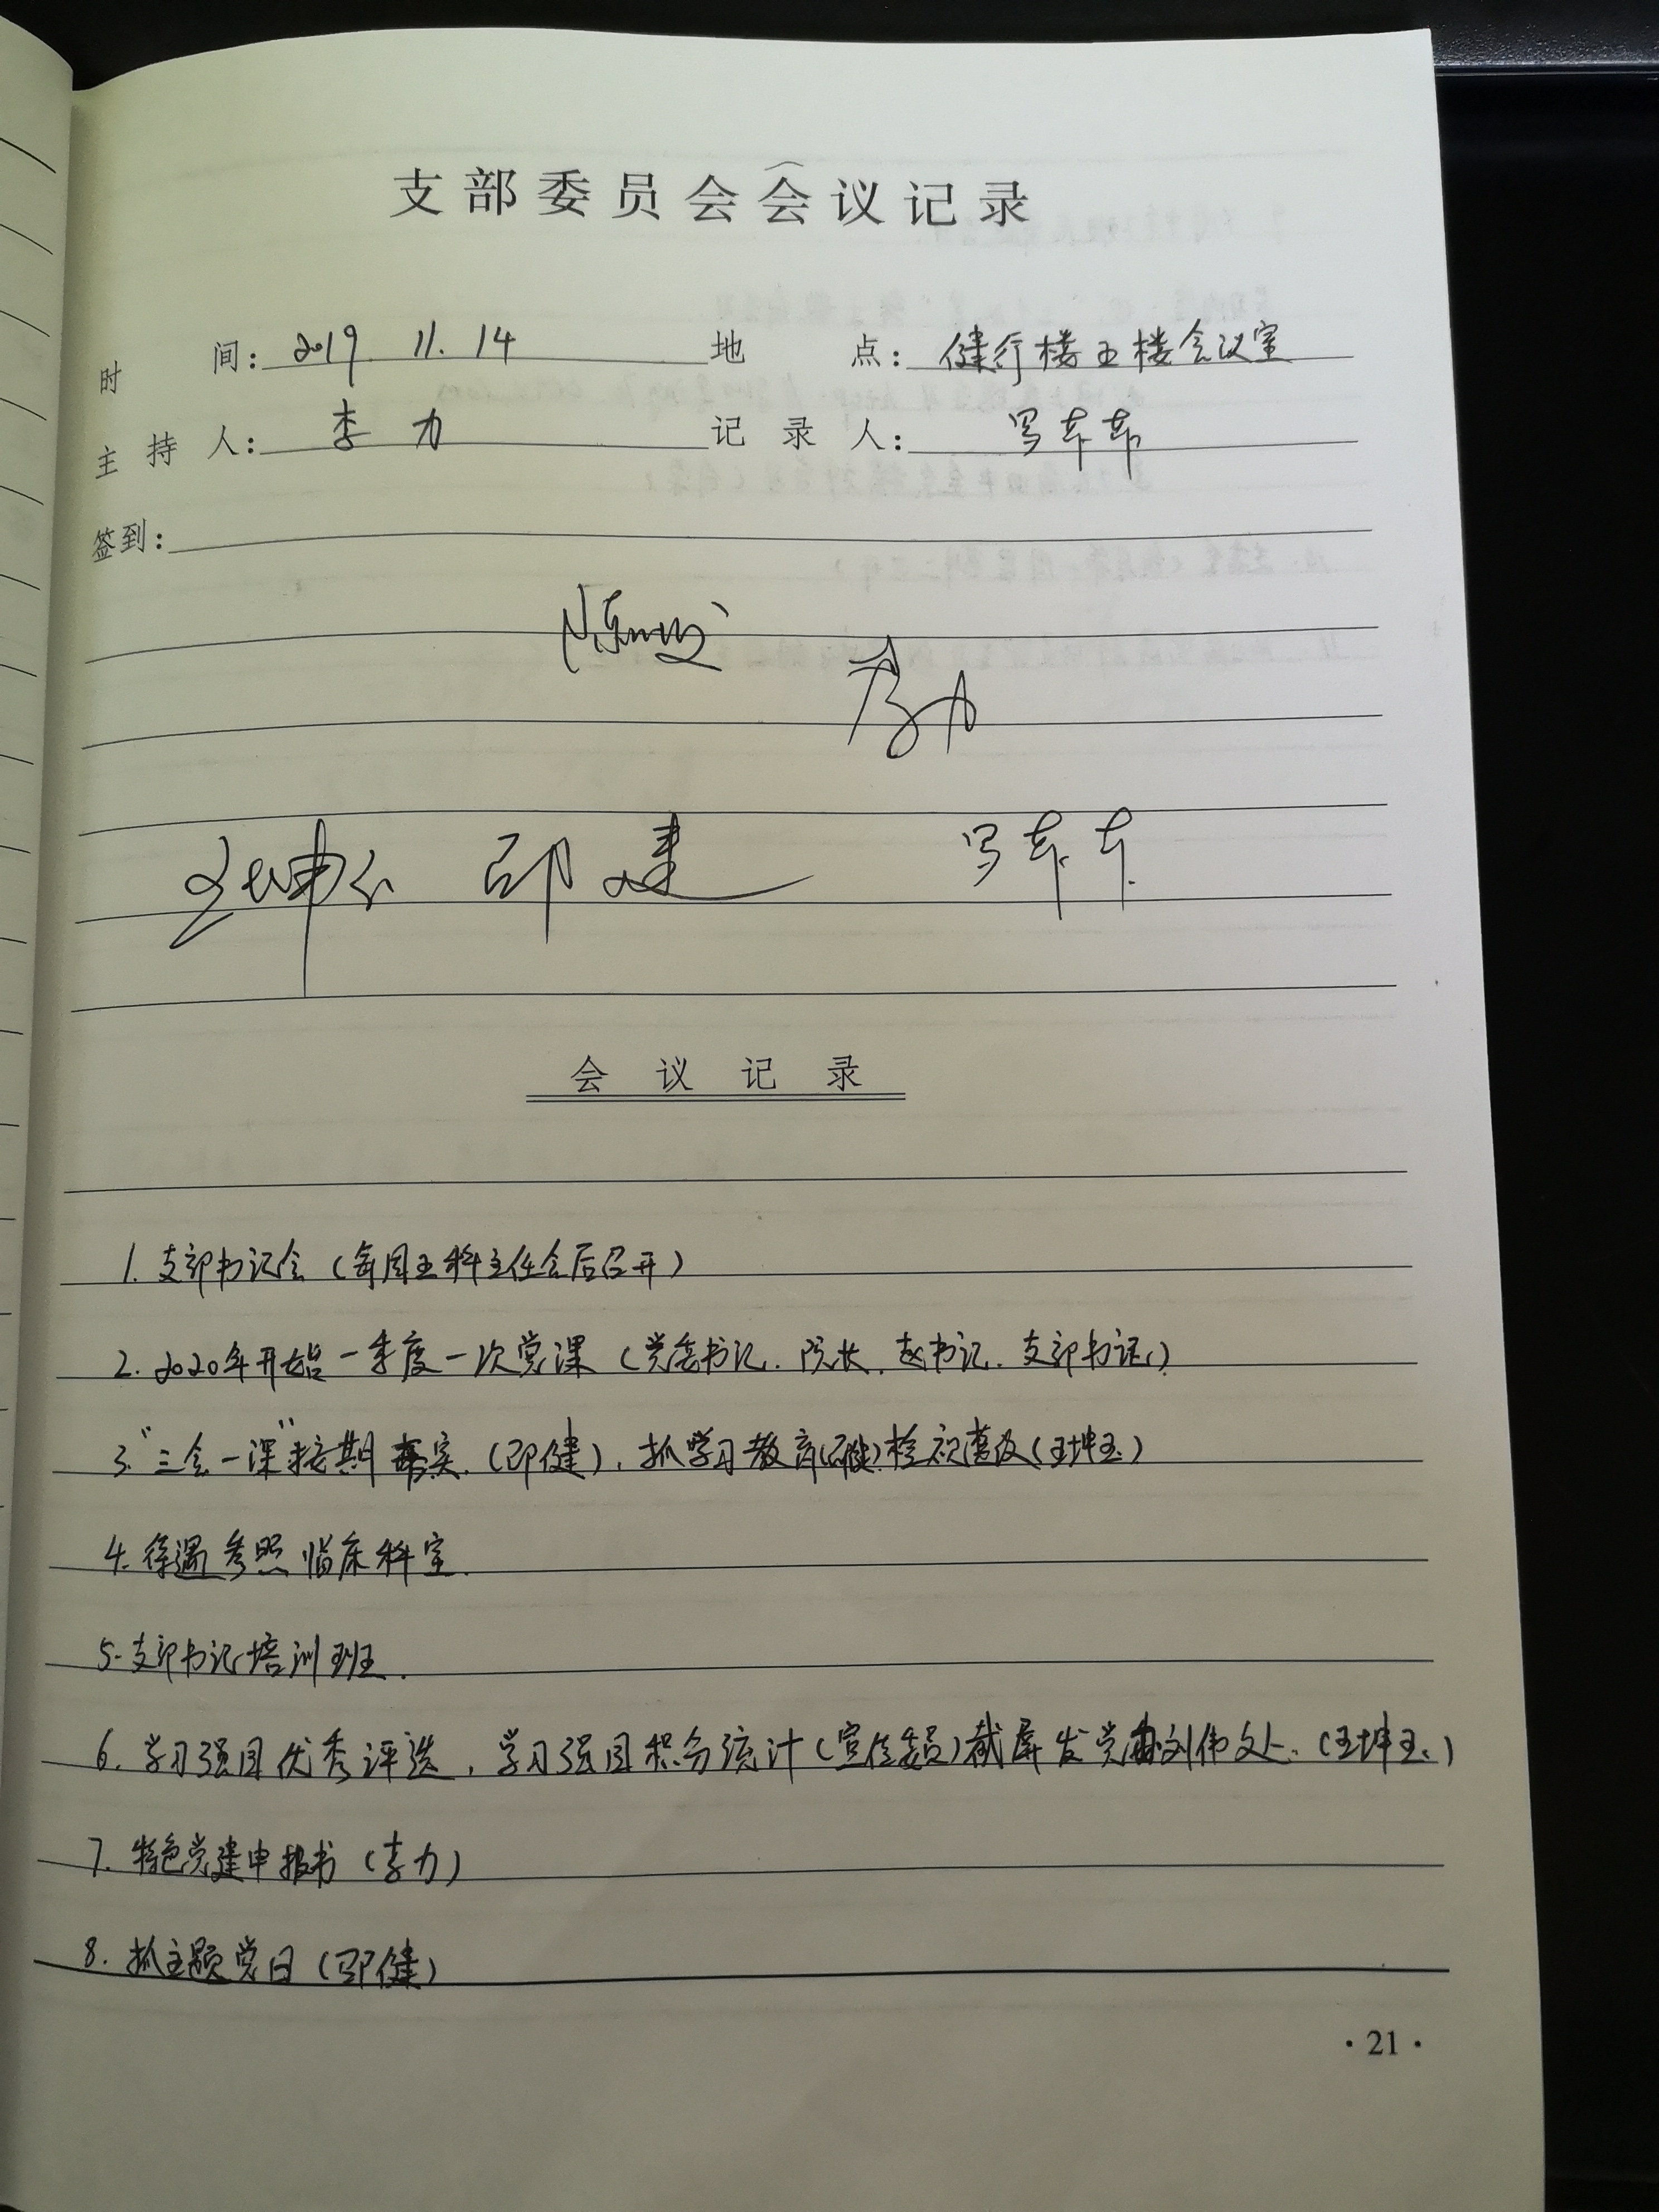 支部委员会会议记录
时间：2019. 11. 14 地点：健行楼五楼会议室
主持人：李力 记录人：
签到：
李力
邵建
会议记录
1. 支部书记会（每周五科主任会后召开）
2. 2020年开始一季度一次党课（党委书记．院长．赵书记．支部书记）
3. "三会一课"按期落实．（邵健），抓学习教育（邵健）检视整改（王坤玉）
4. 待遇参照临床科室．
5. 支部书记培训班．
6. 学习强国优秀评选，学习强国积分统计（宣传委员）截屏发党办刘伟处．（王坤玉）
7. 特色党建申报书（李力）
8. 抓主题党日（邵健）
·21·